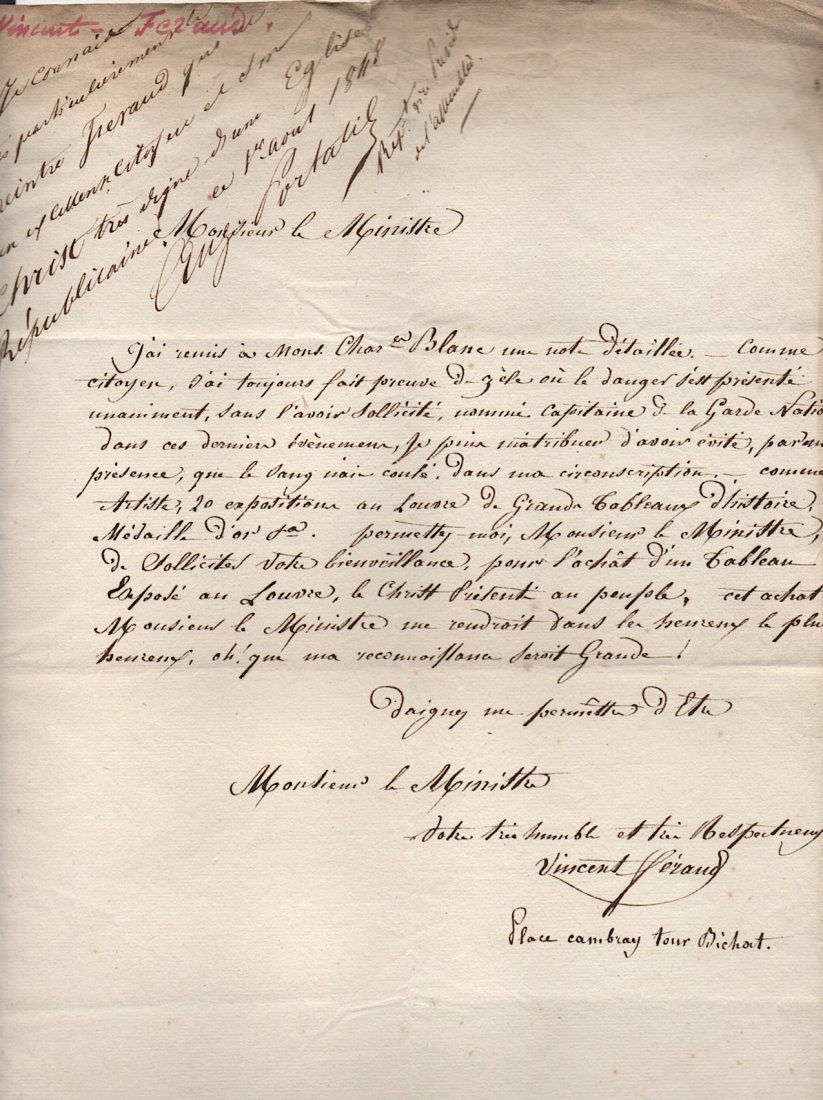 Vincent = Feraud.
Je connais
particulièrement le
peintre Feraud qui est
un excellent citoyen et son
Christ très digne d'une Eglise
Républicaine. ce 1er aout 1848
Aug Portalis
Rept vice Presid
de l'assemblée
Monsieur le Ministre
J'ai remis à Mons. Charles Blanc une note détaillée. – Comme
citoyen, j'ai toujours fait preuve de zèle où le danger s'est présenté
unaniment, sans l'avoir sollicité, nommé Capitaine de la Garde Natio
dans ces derniers évènemens, Je puis m'atribuer d'avoir évité, par ma
présence, que le sang n'aie coulé dans ma circonscription. – comme
Artiste, 20 expositions au Louvre de Grands Tableaux d'histoire,
Médaille d'or &a. permettez-moi, Monsieur le Ministre,
de Solliciter votre bienveillance, pour l'achât d'un Tableau
Exposé au Louvre, le Christ Présenté au peuple, cet achat
Monsieur le Ministre me rendroit dans les heureux le plus
heureux, oh! que ma reconnoissance seroit Grande!
daignez me permêttre d'Etre
Monsieur le Ministre
Votre très humble et très Respectueux
Vincent Féraud
Place cambray tour Bichat.